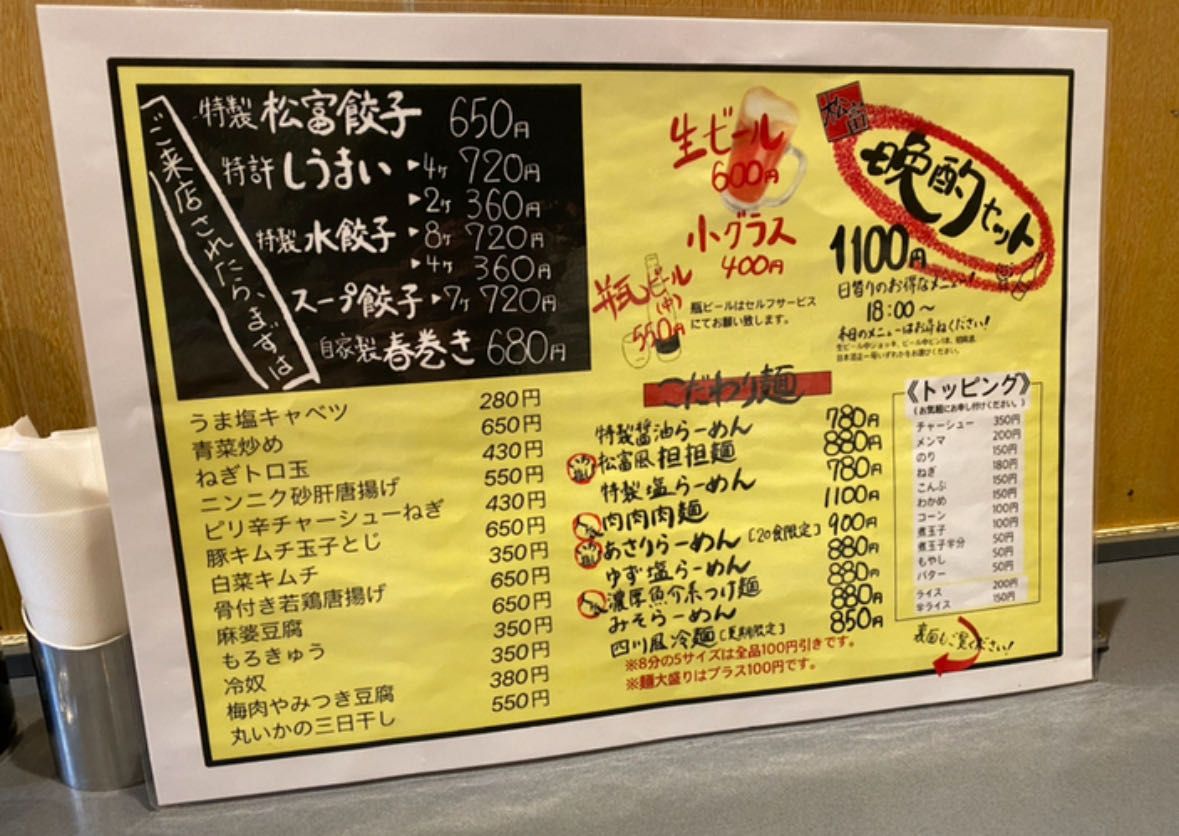 ご来店されたら、まずは
特製 松富餃子 650円
特許 しうまい ▶4ヶ 720円
▶2ヶ 360円
特製 水餃子 ▶8ヶ 720円
▶4ヶ 360円
スープ餃子 ▶7ヶ 720円
自家製 春巻き 680円
生ビール
600円
小グラス
400円
瓶ビール(中)
550円
瓶ビールはセルフサービス
にてお願い致します。
松富
晩酌セット
1100円
日替りのお得なメニュー!
18:00〜
本日のメニューはお尋ねください!
うま塩キャベツ 280円
青菜炒め 650円
ねぎトロ玉 430円
ニンニク砂肝唐揚げ 550円
ピリ辛チャーシューねぎ 430円
豚キムチ玉子とじ 650円
白菜キムチ 350円
骨付き若鶏唐揚げ 650円
麻婆豆腐 650円
もろきゅう 350円
冷奴 350円
梅肉やみつき豆腐 380円
丸いかの三日干し 550円
こだわり麺
特製醤油らーめん 780円
松富風担担麺 880円
特製塩らーめん 780円
肉肉肉麺 1100円
あさりらーめん[20食限定] 900円
ゆず塩らーめん 880円
濃厚魚介系つけ麺 880円
みそらーめん 880円
四川風冷麺[夏期限定] 850円
※8分の5サイズは全品100円引きです。
※麺大盛りはプラス100円です。
《トッピング》
(お気軽にお申し付けください。)
チャーシュー 350円
メンマ 200円
のり 150円
ねぎ 180円
こんぶ 150円
わかめ 150円
コーン 100円
煮玉子 100円
煮玉子半分 50円
もやし 50円
バター 50円
ライス 200円
半ライス 150円
裏面もご覧ください!